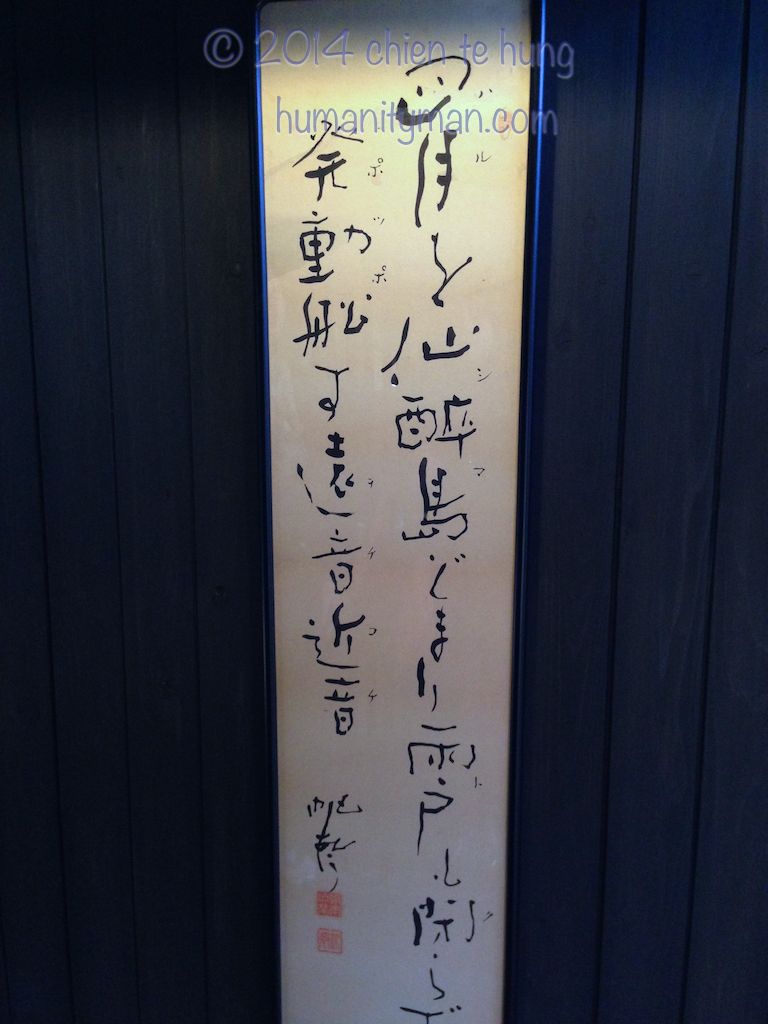 © 2014 chien te hung
humanityman.com
月を仙酔島どまり雨戸も閉らず
発動船す遠音近音